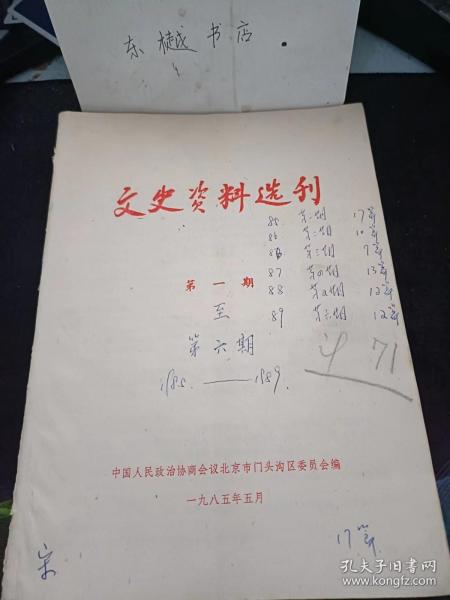 东樾书店
文史资料选刊
85 第一期 17篇
86 第二期 10篇
86 第三期 7篇
87 第四期 13篇
88 第五期 12篇
89 第六期 12篇
第一期
至
第六期
计 71
1985 —— 1989.
中国人民政治协商会议北京市门头沟区委员会编
一九八五年五月
17篇
孔夫子旧书网
www.kongfz.com